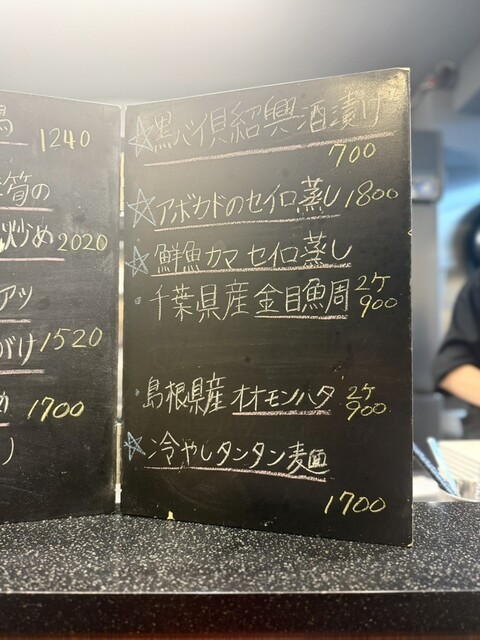 1240
筍の
炒め 2020
アツ
がけ 1520
め 1700
☆黒バイ貝紹興酒漬け
700
☆アボカドのセイロ蒸し 1800
☆鮮魚カマセイロ蒸し
・千葉県産金目魚周 2ケ
900
・島根県産オオモンハタ 2ケ
900
☆冷やしタンタン麺
1700